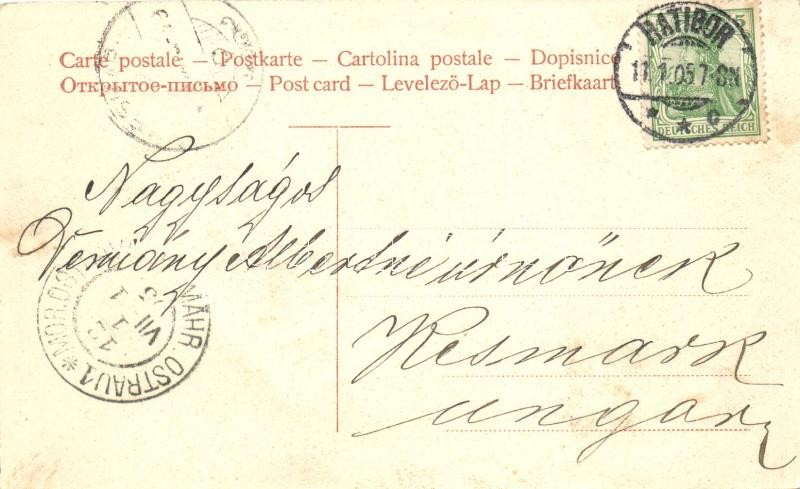 Carte postale — Postkarte — Cartolina postale — Dopisnice
Открытое-письмо — Post card — Levelező-Lap — Briefkaart
RATIBOR
11. 05 7-8N
* * c
DEUTSCHES REICH
Nagyságos
Albertné úrnőnek
Kesmark
Ungar
MÄHR. OSTRAU 1 * MOR. OS
12
VII